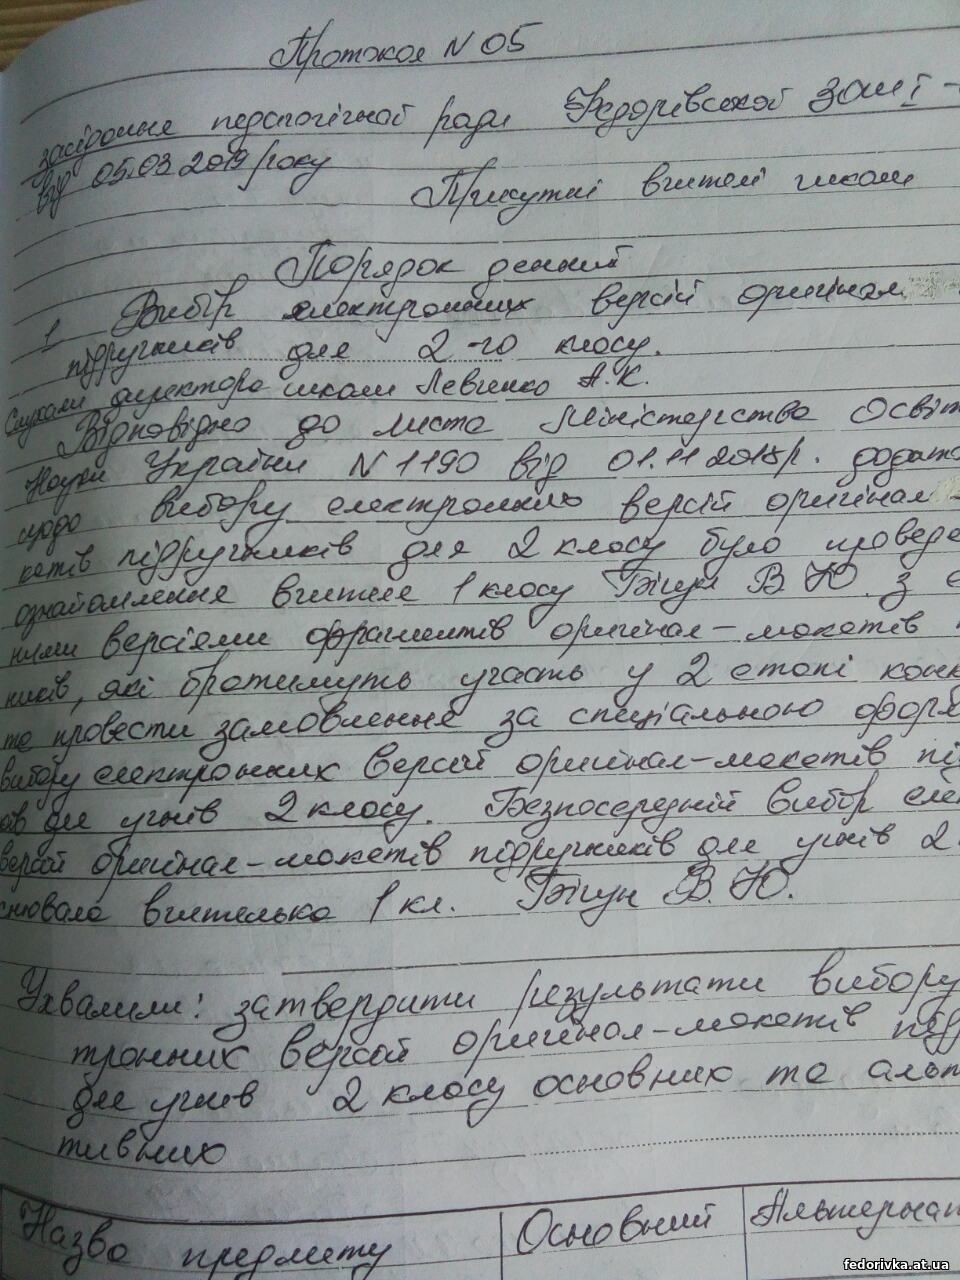 Протокол N 05
засідання педагогічної ради Федорівської ЗОШ І -
від 05.03.2019 року
Присутні вчителі школи
Порядок денний
1 Вибір електронних версій оригінал
підручників для 2-го класу.
Слухали директора школи Левченко А. К.
Відповідно до листа Міністерства Освіт
Науки України N 1190 від 01.11 2018р. додат
щодо вибору електронних версій оригінал -
кетів підручників для 2 класу було проведе
ознайомлення вчителя 1 класу Бігун В Ю. з е
ними версіями фрагментів оригінал-макетів
ників, які братимуть участь у 2 етапі конк
та провести замовлення за спеціальною форм
вибору електронних версій оригінал-макетів пі
ків для учнів 2 класу. Безпосередній вибір еле
версій оригінал-макетів підручників для учнів 2
снювала вчителька 1 кл. Бігун В. Ю.
Ухвалили: затвердити результати вибору
тронних версій оригінал-макетів під
для учнів 2 класу основних та альт
тивних
Назва предмету Основний Альтернат
fedorivka.at.ua